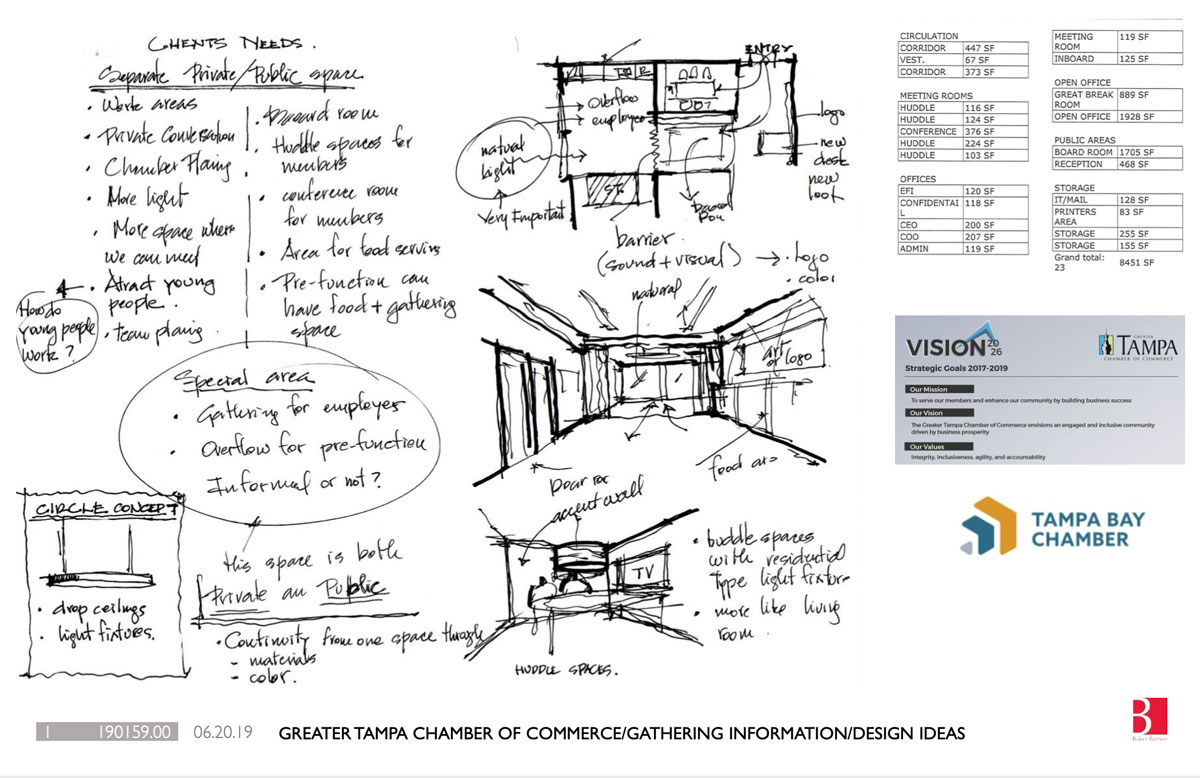 CLIENTS NEEDS.
Separate Private/Public space
• Work areas
• Private Conversation
• Chamber Planing
• More light
• More space where
we can meet
• Atract young
people.
• team planing
How do
young people
work?
room
• Huddle spaces for
members
• conference room
for members
• Area for food serving
• Pre-function can
have food + gathering
space
Special area
• Gathering for employees
• Overflow for pre-function
Informal or not?
CIRCLE CONCEPT
• drop ceilings
• light fixtures.
this space is both
Private an Public
• Continuity from one space through
- materials
- color.
ENTRY
Overflow
employees
natural
light
Very Important
logo
new
desk
new
look
barrier
(sound + visual) → • Logo
• color
natural
art or
logo
food area
accent wall
TV
HUDDLE SPACES.
• huddle spaces
with residential
type light fixture
• more like living
room.
CIRCULATION
CORRIDOR 447 SF
VEST. 67 SF
CORRIDOR 373 SF
MEETING ROOMS
HUDDLE 116 SF
HUDDLE 124 SF
CONFERENCE 376 SF
HUDDLE 224 SF
HUDDLE 103 SF
OFFICES
EFI 120 SF
CONFIDENTAI 118 SF
L
CEO 200 SF
COO 207 SF
ADMIN 119 SF
MEETING 119 SF
ROOM
INBOARD 125 SF
OPEN OFFICE
GREAT BREAK 889 SF
ROOM
OPEN OFFICE 1928 SF
PUBLIC AREAS
BOARD ROOM 1705 SF
RECEPTION 468 SF
STORAGE
IT/MAIL 128 SF
PRINTERS 83 SF
AREA
STORAGE 255 SF
STORAGE 155 SF
Grand total: 8451 SF
23
VISION 20
26
Strategic Goals 2017-2019
GREATER
TAMPA
CHAMBER OF COMMERCE
Our Mission
To serve our members and enhance our community by building business success
Our Vision
The Greater Tampa Chamber of Commerce envisions an engaged and inclusive community
driven by business prosperity
Our Values
Integrity, inclusiveness, agility, and accountability
TAMPA BAY
CHAMBER
1 190159.00 06.20.19 GREATER TAMPA CHAMBER OF COMMERCE/GATHERING INFORMATION/DESIGN IDEAS
B